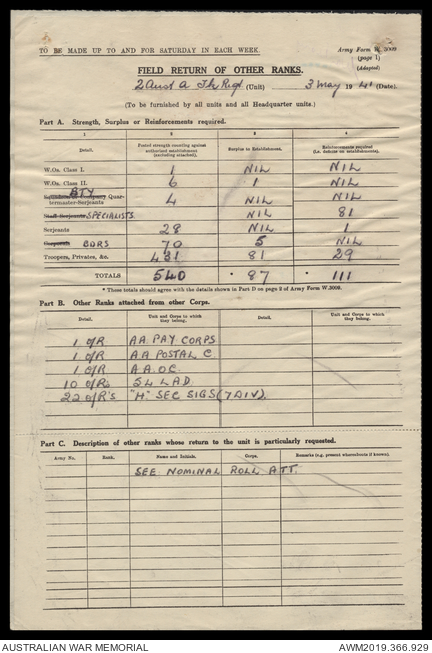 TO BE MADE UP TO AND FOR SATURDAY IN EACH WEEK.
Army Form W. 3009
(page 1)
(Adapted)
FIELD RETURN OF OTHER RANKS.
2 Aust A Tk Regt (Unit) 3 May 1941 (Date).
(To be furnished by all units and all Headquarter units.)
Part A. Strength, Surplus or Reinforcements required.
1 2 3 4
Detail. Posted strength counting against authorized establishment (excluding attached). Surplus to Establishment. Reinforcements required (i.e. deficit on establishments).
W.On. Class I. 1 NIL NIL
W.On. Class II. 6 1 NIL
Squadron or Company BTY Quar-
termaster-Serjeants 4 NIL NIL
Staff Serjeants SPECIALISTS NIL 81
Serjeants 28 NIL 1
Corporals BDRS 70 5 NIL
Troopers, Privates, &c. 431 81 29
TOTALS 540 * 87 * 111
* These totals should agree with the details shown in Part D on page 2 of Army Form W.3009.
Part B. Other Ranks attached from other Corps.
Detail. Unit and Corps to which they belong. Detail. Unit and Corps to which they belong.
1 O/R A.A. PAY CORPS
1 O/R A.A POSTAL C
1 O/R A.A.O.C.
10 O/Rs 54 L.A.D.
22 O/R's "H" SEC SIGS (7 DIV).
Part C. Description of other ranks whose return to the unit is particularly requested.
Army No. Rank. Name and Initials. Corps. Remarks (e.g. present whereabouts if known).
SEE NOMINAL ROLL ATT.
AUSTRALIAN WAR MEMORIAL AWM2019.366.929